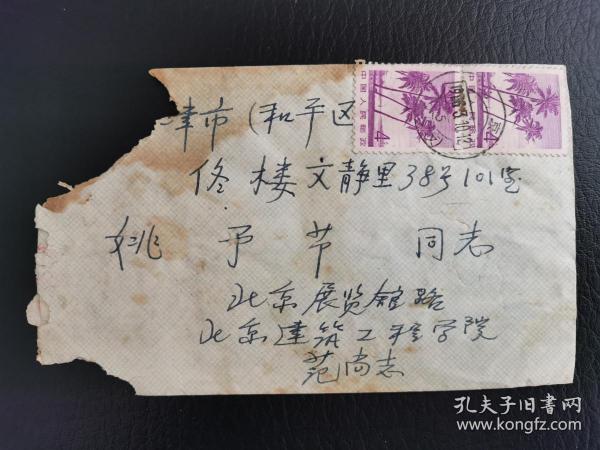 津市(和平区
佟楼文静里38号101室
姚予节 同志
北京展览馆路
北京建筑工程学院
范尚志
中国人民邮政
4
中国人民邮政
4
孔夫子旧书网
www.kongfz.com